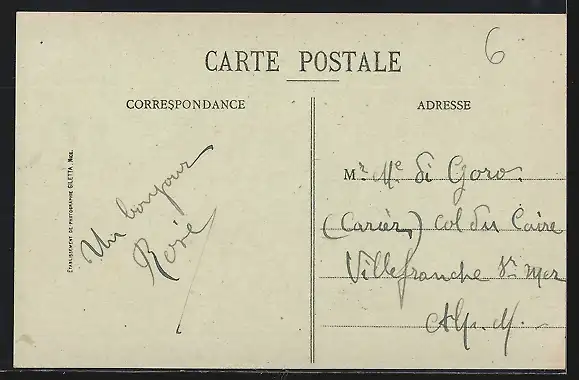 6
CARTE POSTALE
CORRESPONDANCE
ADRESSE
ÉTABLISSEMENT DE PHOTOGRAPHIE GILETTA, NICE.
Un bonjour
Rose
Mr. Me. di Goro
(Carrièr) Col du Caire
Villefranche sr mer
Alp. M.